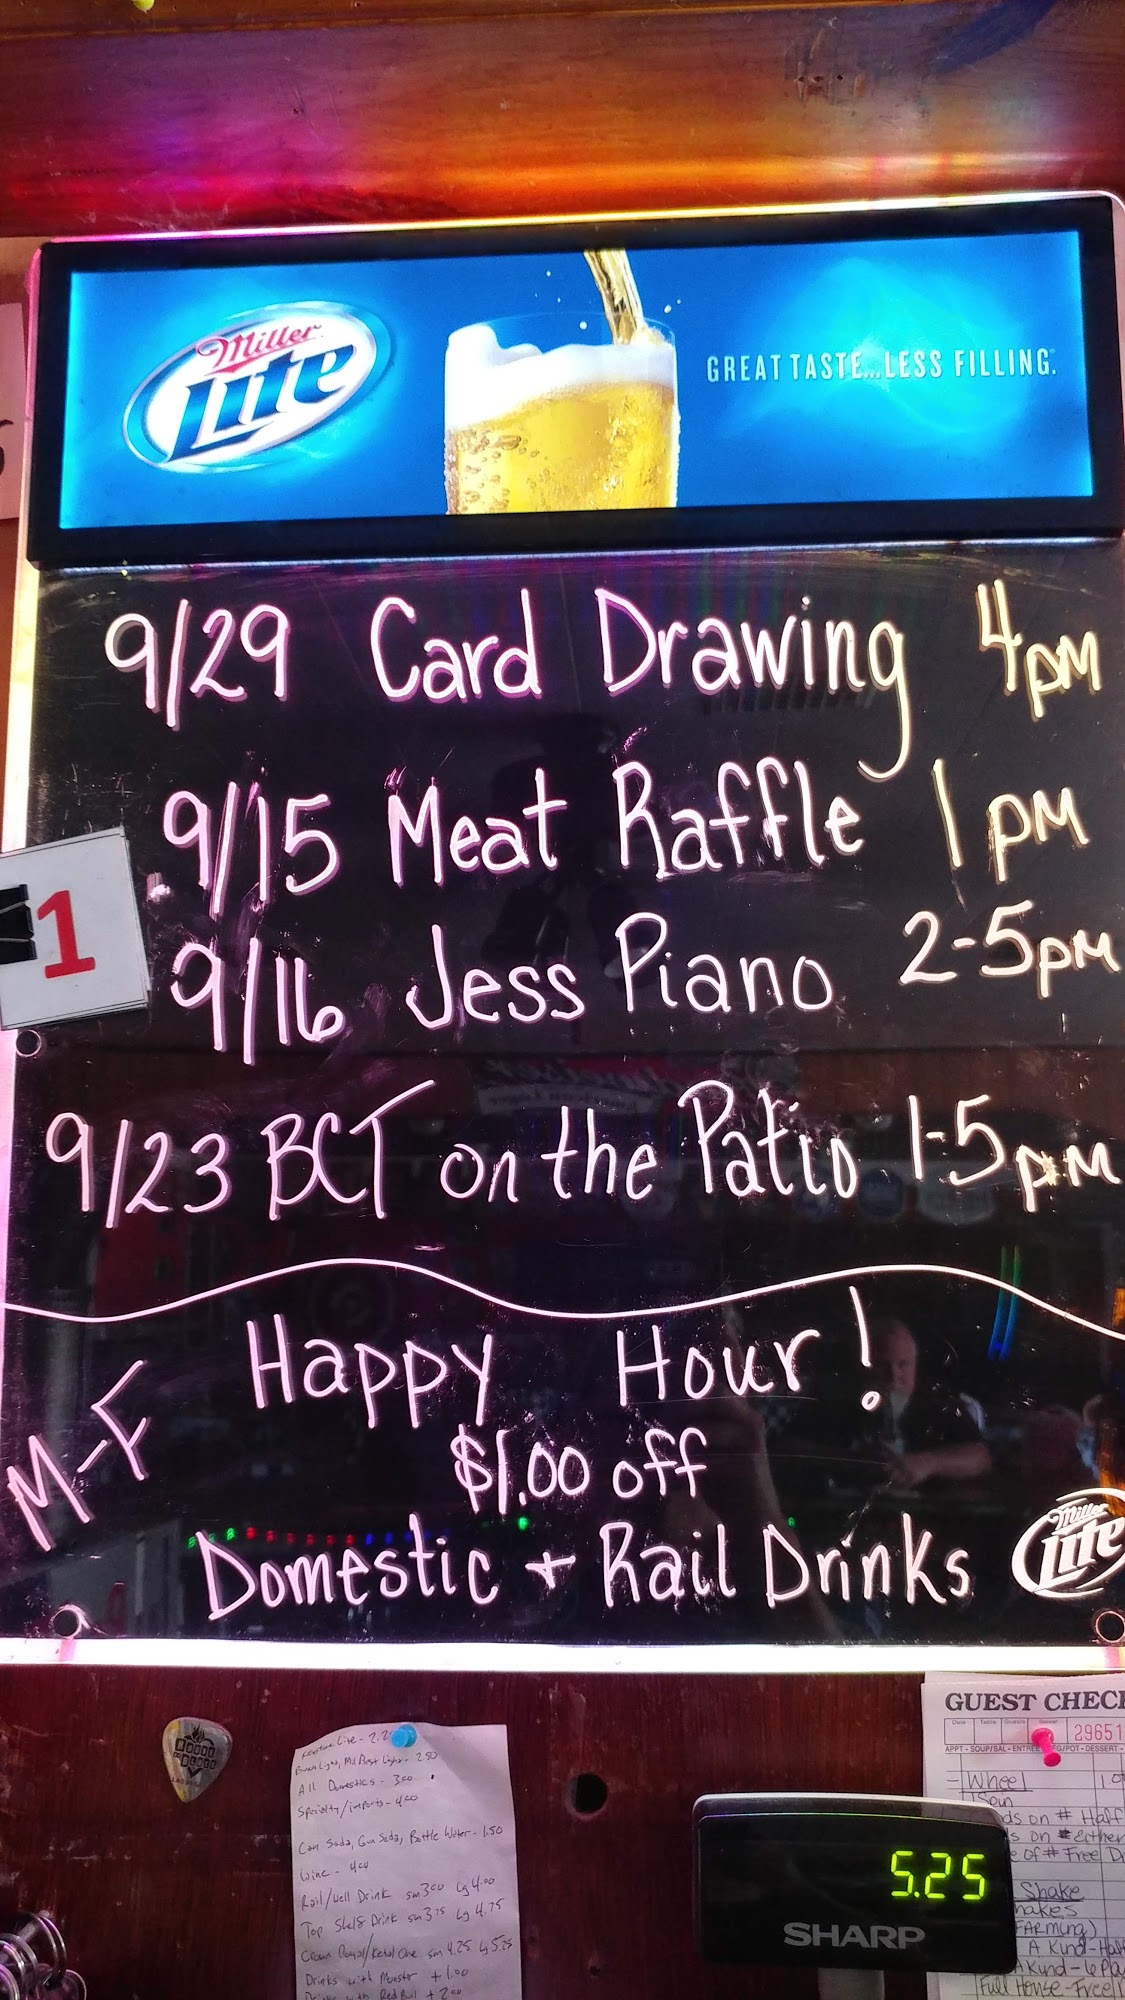 Miller
Lite
GREAT TASTE...LESS FILLING.
9/29 Card Drawing 4pm
9/15 Meat Raffle 1pm
1
9/16 Jess Piano 2-5pm
9/23 BCT on the Patio 1-5pm
Happy Hour!
M-F
$1.00 off
Domestic + Rail Drinks
Miller
Lite
GUEST CHEC
29651
Wheel
Keystone Lite - 2.2
Busch Light, Mil Best Light - 2.50
All Domestics - 3.00
Specialty/imports - 4.00
Can Soda, Gun Soda, Bottle Water - 1.50
Wine - 4.00
Rail/Well Drink sm 3.00 Lg 4.00
Top Shelf Drink sm 3.75 Lg 4.75
Crown Royal/Ketel One sm 4.25 Lg 5.25
Drinks with Monster + 1.00
Drinks with Red Bull + 2.00
5.25
SHARP
on # Half
on # Either
of # Free
Shake
A Kind - Half
A Kind - 6
Full House - Free